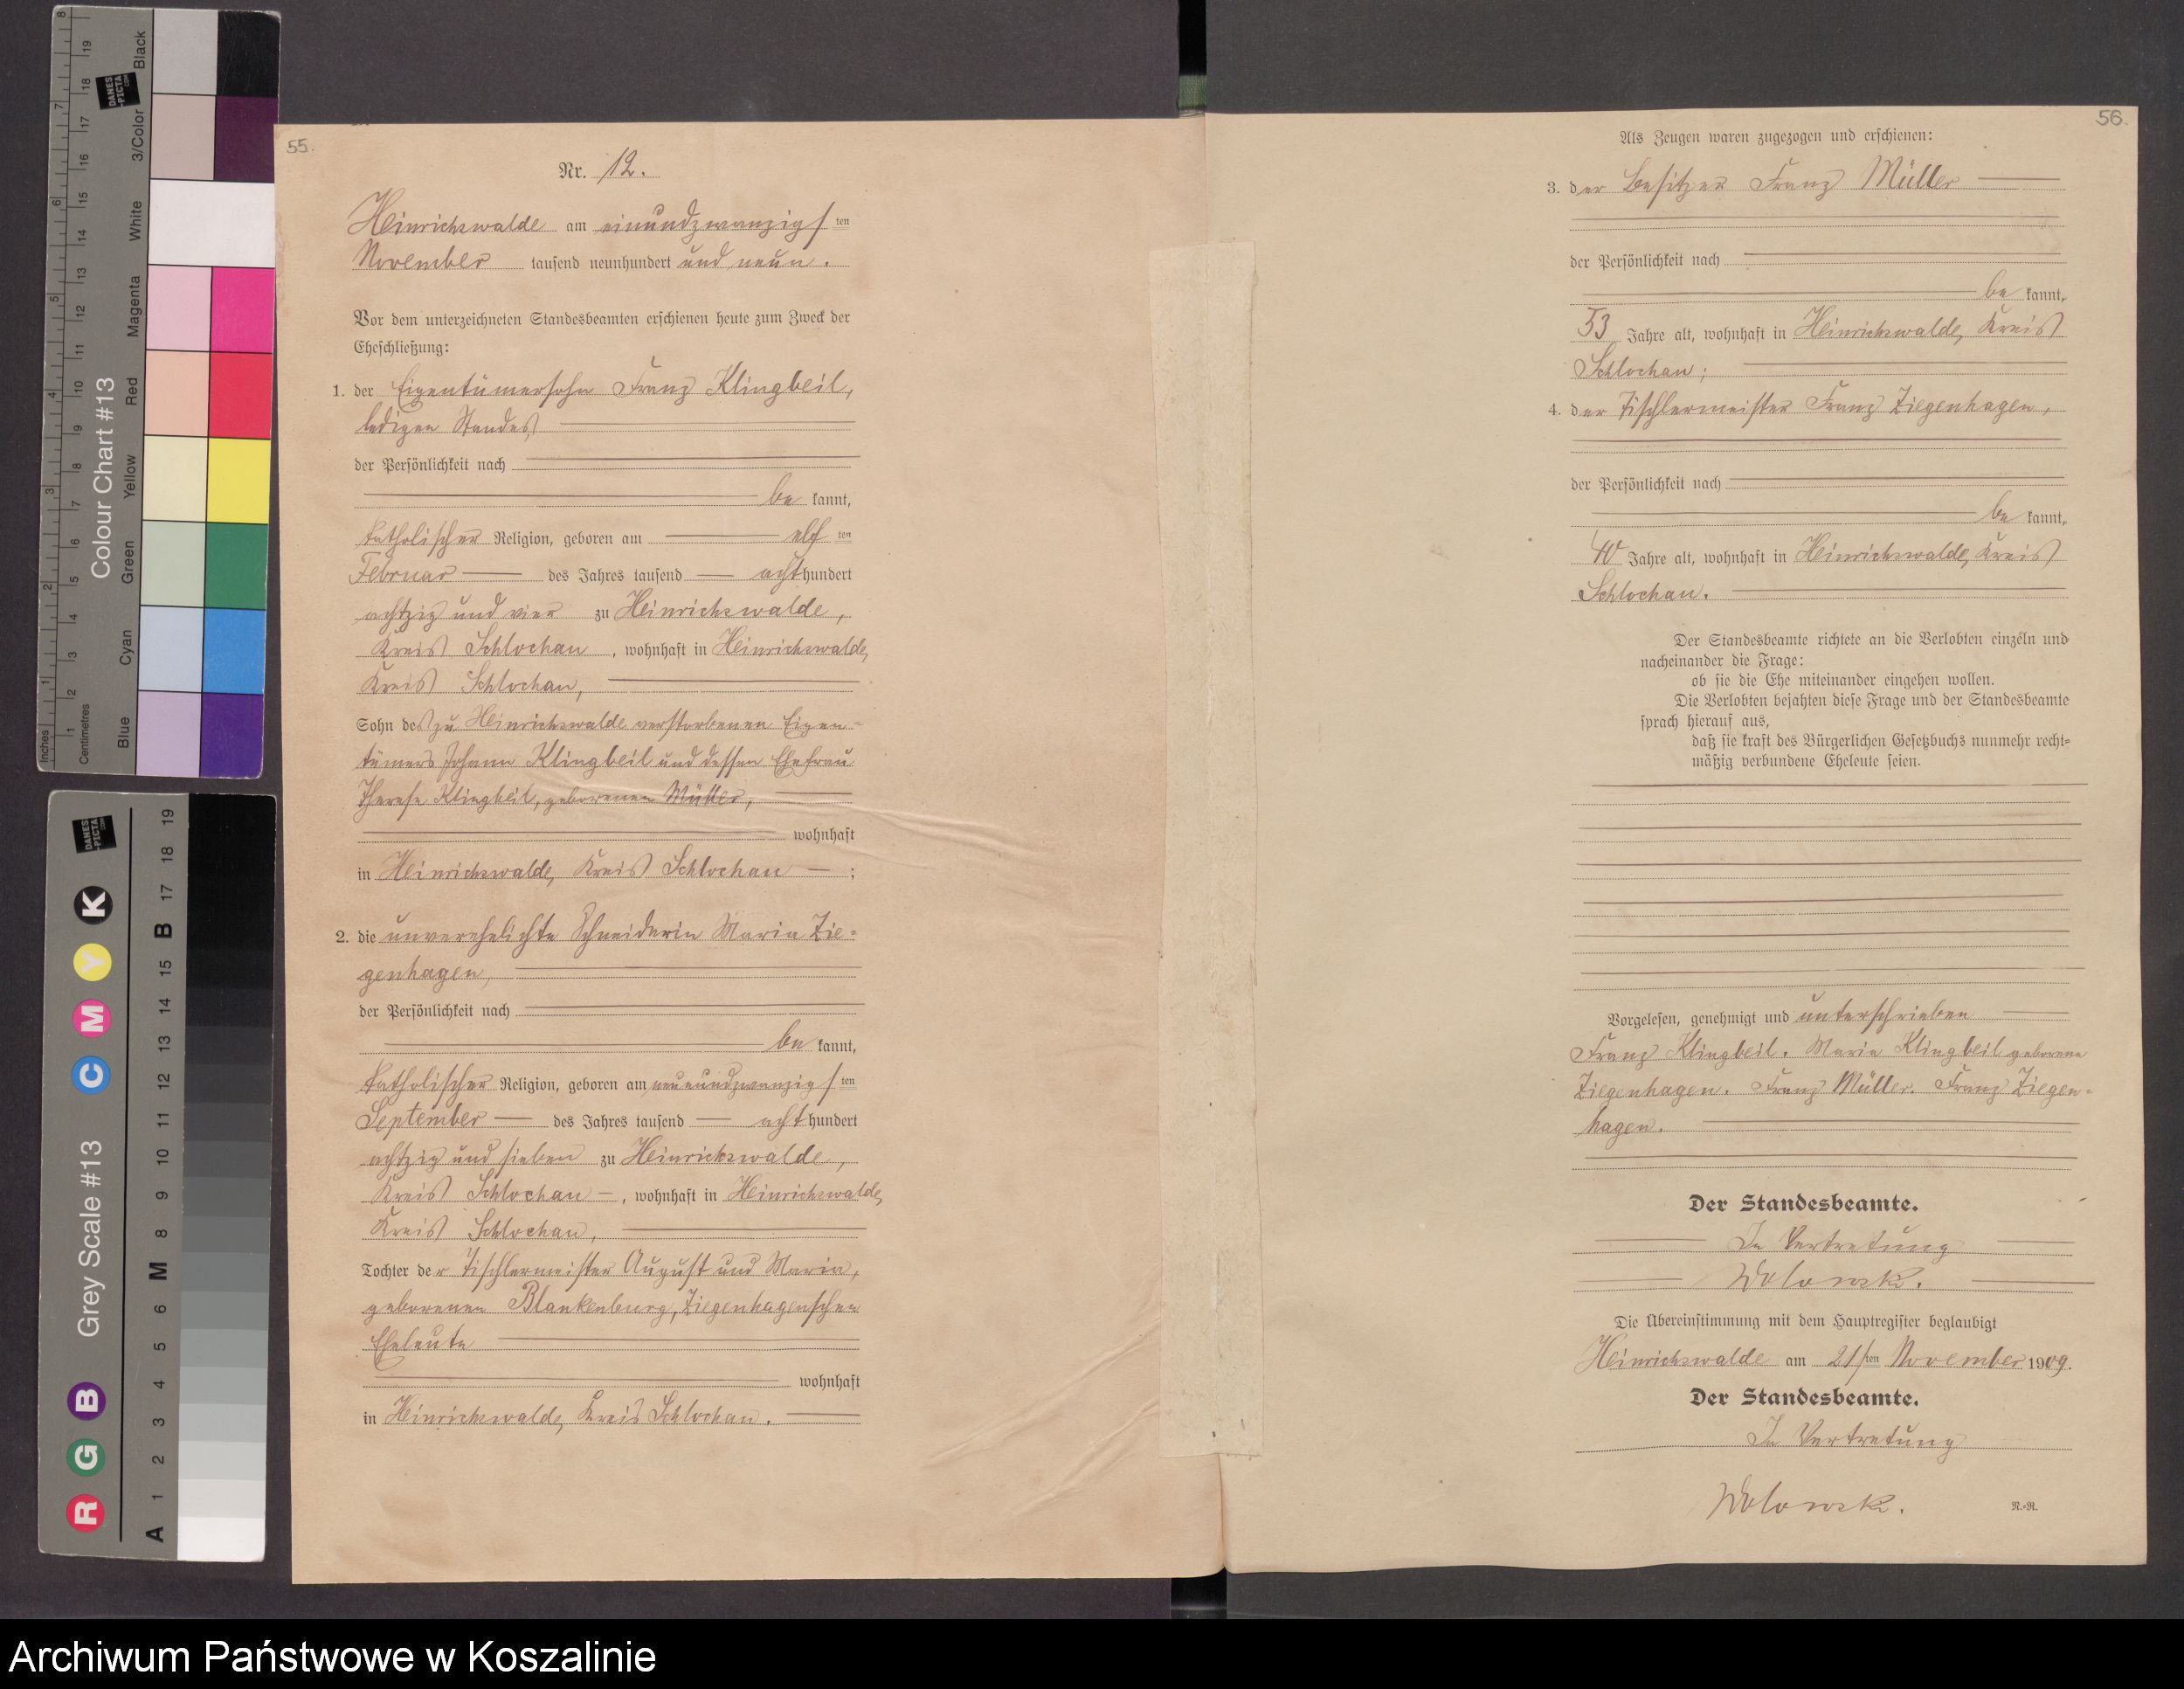 55.
Nr. 12.
Heinrichswalde am einundzwanzigsten
November tausend neunhundert und neun.
Vor dem unterzeichneten Standesbeamten erschienen heute zum Zweck der
Eheschließung:
1. der Eigentümersohn Franz Klingbeil,
ledigen Standes,
der Persönlichkeit nach
be kannt,
katholischer Religion, geboren am elf ten
Februar des Jahres tausend acht hundert
achtzig und vier zu Heinrichswalde,
Kreis Schlochau, wohnhaft in Heinrichswalde,
Kreis Schlochau,
Sohn des zu Heinrichswalde verstorbenen Eigen-
tümers Johann Klingbeil und dessen Ehefrau
Therese Klingbeil, geborenen Müller,
wohnhaft
in Heinrichswalde, Kreis Schlochau ;
2. die unverehelichte Schneiderin Maria Zie-
genhagen,
der Persönlichkeit nach
be kannt,
katholischer Religion, geboren am neunundzwanzigsten
September des Jahres tausend acht hundert
achtzig und sieben zu Heinrichswalde,
Kreis Schlochau, wohnhaft in Heinrichswalde,
Kreis Schlochau,
Tochter der Tischlermeister August und Maria,
geborenen Blankenburg, Ziegenhagenschen
Eheleute
wohnhaft
in Heinrichswalde, Kreis Schlochau.
56.
Als Zeugen waren zugezogen und erschienen:
3. der Besitzer Franz Müller
der Persönlichkeit nach
be kannt,
53 Jahre alt, wohnhaft in Heinrichswalde, Kreis
Schlochau;
4. der Tischlermeister Franz Ziegenhagen,
der Persönlichkeit nach
be kannt,
40 Jahre alt, wohnhaft in Heinrichswalde, Kreis
Schlochau.
Der Standesbeamte richtete an die Verlobten einzeln und
nacheinander die Frage:
ob sie die Ehe miteinander eingehen wollen.
Die Verlobten bejahten diese Frage und der Standesbeamte
sprach hierauf aus,
daß sie kraft des Bürgerlichen Gesetzbuchs nunmehr recht-
mäßig verbundene Eheleute seien.
Vorgelesen, genehmigt und unterschrieben
Franz Klingbeil. Maria Klingbeil geborene
Ziegenhagen. Franz Müller. Franz Ziegen-
hagen.
Der Standesbeamte.
In Vertretung
Wolowski.
Die Übereinstimmung mit dem Hauptregister beglaubigt
Heinrichswalde am 21sten November 1909.
Der Standesbeamte.
In Vertretung
Wolowski.
N.-R.
Colour Chart #13
Blue Cyan Green Yellow Red Magenta White 3/Color Black
Inches
Centimetres
DANES-PICTA.COM
Grey Scale #13
R G B C M Y K
A 1 2 3 4 5 6 M 8 9 10 11 12 13 14 15 B 17 18 19
Archiwum Państwowe w Koszalinie